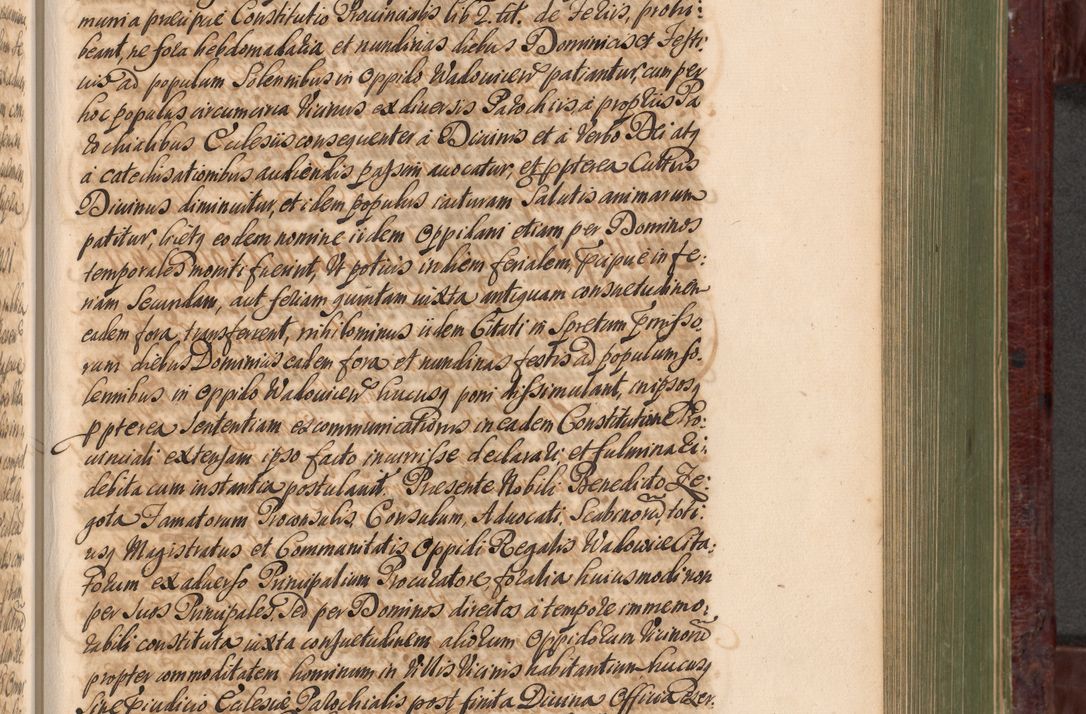 muria præcipue Constitutio Provincialis lib 2. tit. de Ferijs, prohi-
beant, ne fora hebdomadaria et nundinas diebus Dominicis et Festi-
uis ad populum Solennibus in Oppido Wadowicen patiantur, cum per
hoc populus circumuicinus ex diuersis Parochijs a proprijs Pa
rochialibus Ecclesijs consequenter a Diuinis et a Verbo Dei atq
a catechisationibus audiendis passim auocatur, et ppterea Cultus
Diuinus diminuitur, et idem populus iacturam Salutis animarum
patitur, licetq eodem nomine iidem Oppidani etiam per Dominos
temporales moniti fuerint, Vt potius in diem ferialem, Præcipue in fe:
riam Secundam, aut feriam quintam iuxta antiquam consuetudinem
eadem fora, transferrent, nihilominus iidem Citati in Spretum Præmisso-
rum diebus Dominicis eadem fora et nundinas festis ad populum so-
lennibus in Oppido Wadowicen hucusq poni dissimulant, in ipsos q
ppterea Sententiam excommunicationis in eadem Constitutione Pro-
uinciali extensam ipso facto incurrisse declarari et fulminari:
debita cum instantia postulauit. Præsente Nobili Benedicto Ze:
gota Famatorum Proconsulis Consulum, Aduocati, Scabinorũ toti
usq Magistratus et Communitatis Oppidi Regalis Wadowice Cita-
torum ex aduerso Principalium Procuratore, foralia huiusmodi non
per suos Principales, sed per Dominos directos a tempore immemo:
rabili constituta iuxta consuetudinem aliorum Oppidorum Vicinorũ
propter commoditatem hominum in Villis Vicinis habitantium hucusq
sine Præiudicio Ecclesiæ Parochialis post finita Diuina Officia exer-